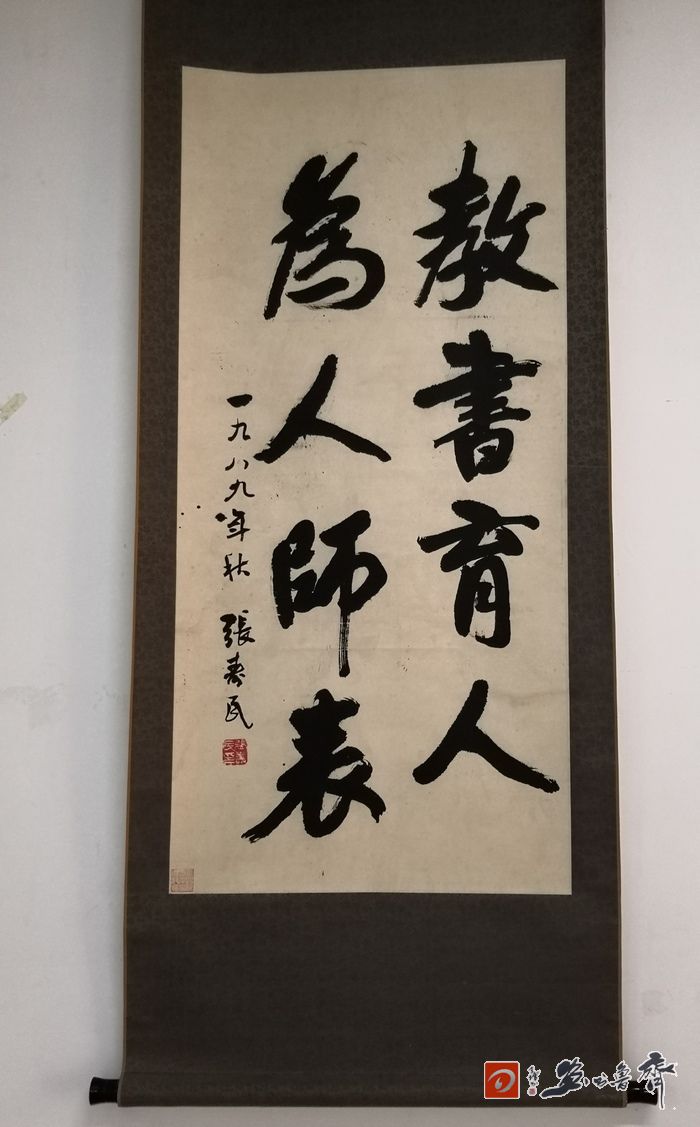 教書育人
為人師表
一九八九年秋 張寿民